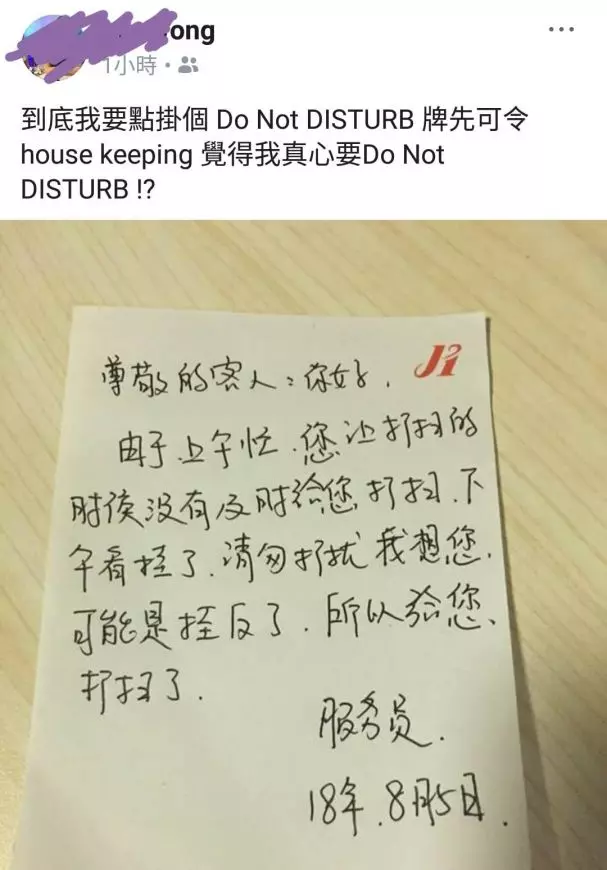 ong
1小時
到底我要點掛個 Do Not DISTURB 牌先可令
house keeping 覺得我真心要Do Not
DISTURB !?
Ji
尊敬的客人：你好.
由于上午忙.您让打扫的
时侯没有及时给您打扫.下
午看挂了.请勿打扰我想您.
可能是挂反了.所以给您.
打扫了.
服务员.
18年.8月5日.